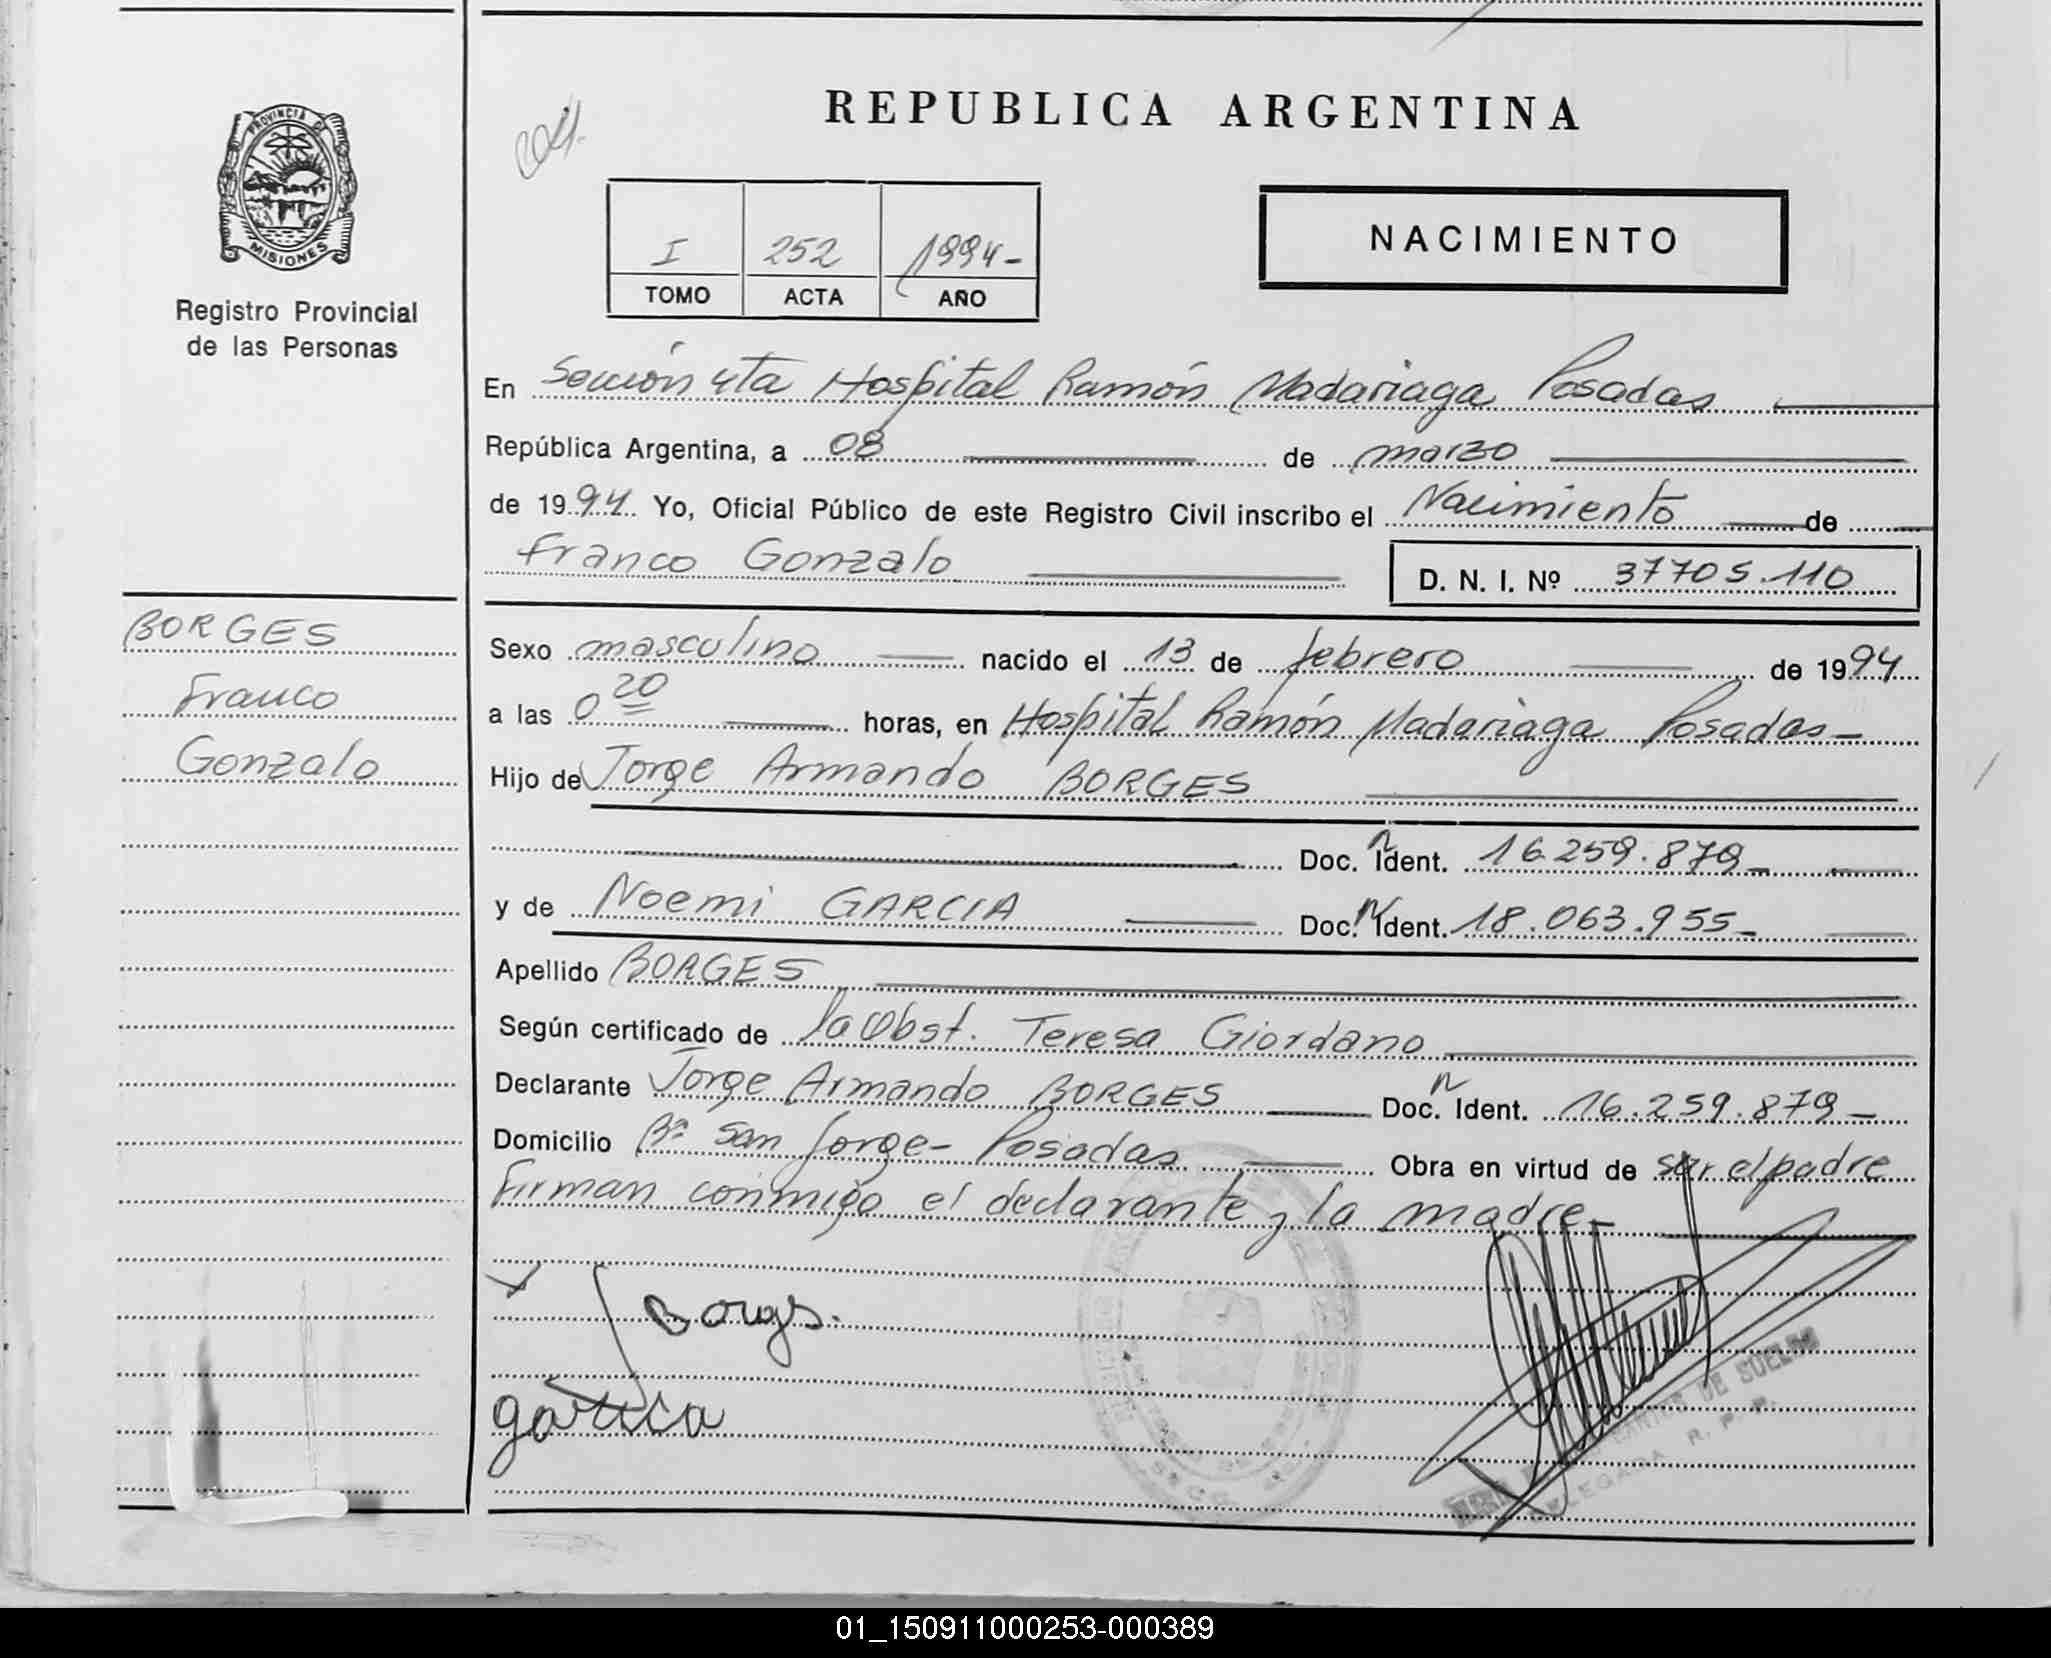 REPUBLICA ARGENTINA
PROVINCIA DE
MISIONES
Registro Provincial
de las Personas
I 252 1994-
TOMO ACTA AÑO
NACIMIENTO
En Sección 4ta Hospital Ramón Madariaga Posadas
República Argentina, a 08 de marzo
de 1994 Yo, Oficial Público de este Registro Civil inscribo el Nacimiento de
Franco Gonzalo D. N. I. Nº 37705.110
BORGES
Franco
Gonzalo
Sexo masculino nacido el 13 de febrero de 1994
a las 0 20 horas, en Hospital Ramón Madariaga Posadas-
Hijo de Jorge Armando BORGES
Doc. N Ident. 16.259.879-
y de Noemi GARCIA Doc. N Ident. 18.063.955-
Apellido BORGES
Según certificado de la Obst. Teresa Giordano
Declarante Jorge Armando BORGES Doc. N Ident. 16.259.879-
Domicilio Bº San Jorge- Posadas Obra en virtud de ser el padre
Firman conmigo el declarante y la madre-
Borges.
garcia
DE SUELDO
DELEGADA R. P. P.
01_150911000253-000389